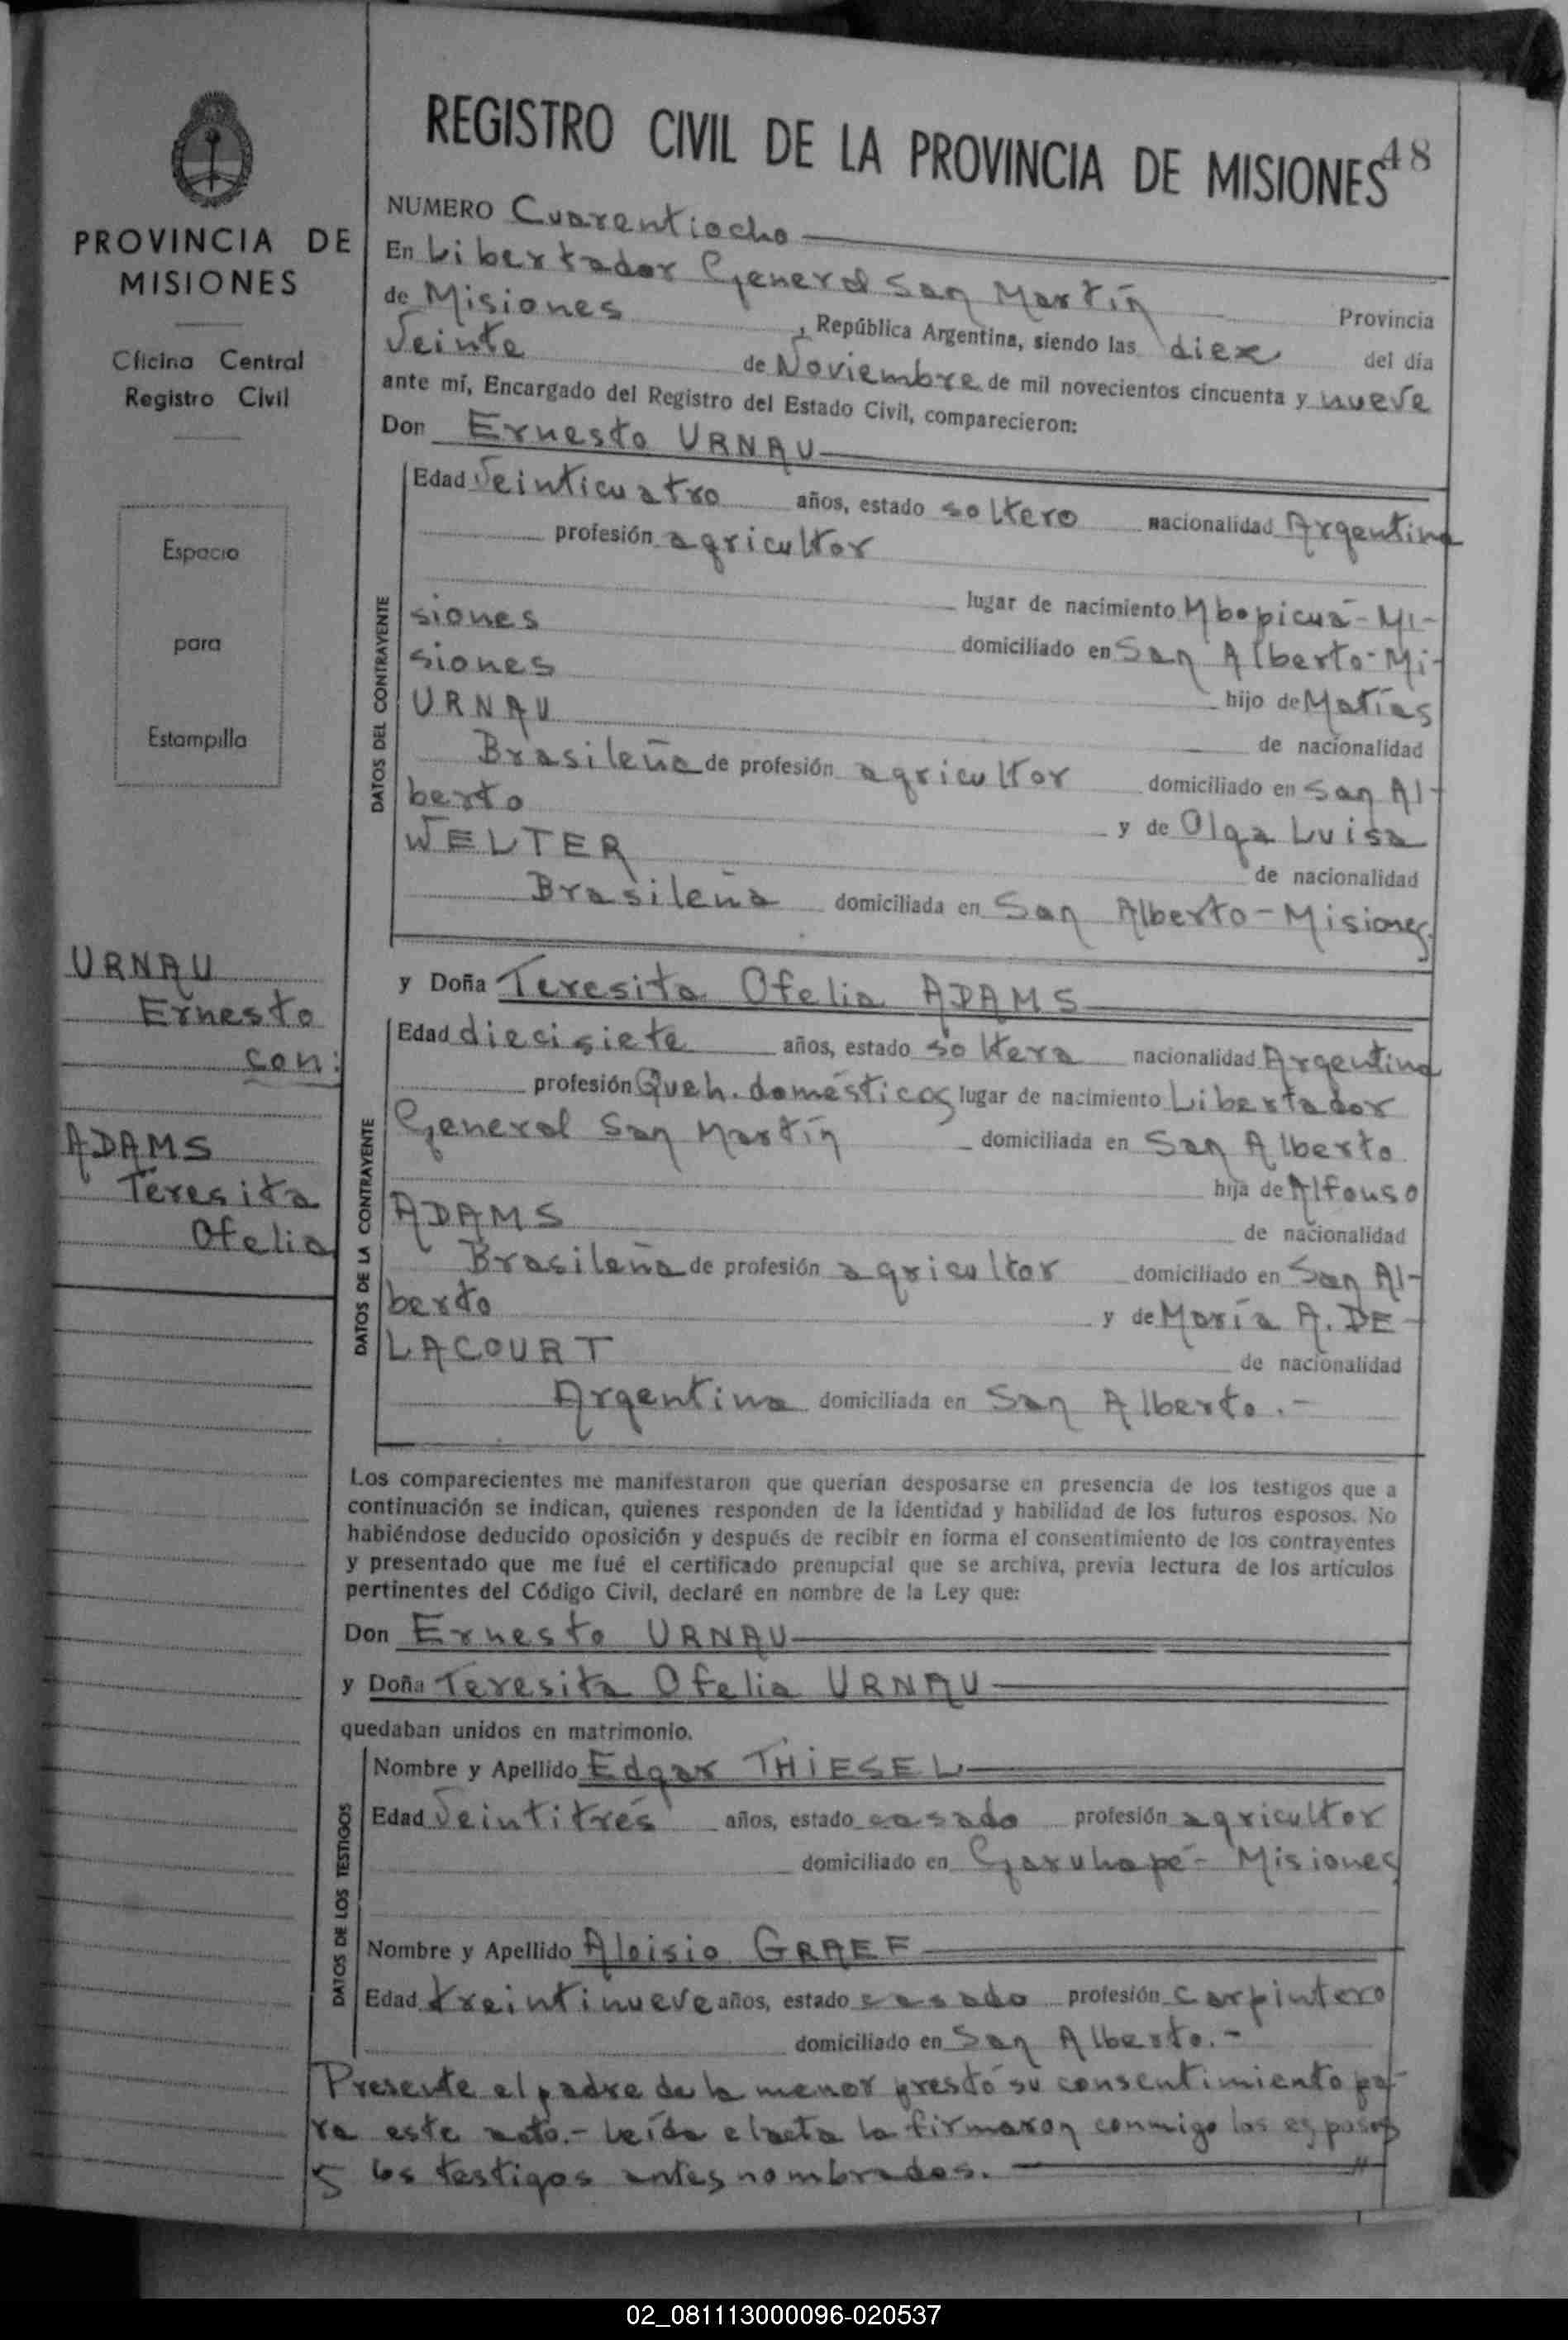 PROVINCIA DE
MISIONES
Oficina Central
Registro Civil
Espacio
para
Estampilla
URNAU
Ernesto
con:
ADAMS
Teresita
Ofelia
REGISTRO CIVIL DE LA PROVINCIA DE MISIONES 48
NUMERO Cuarentiocho
En Libertador General San Martín Provincia
de Misiones, República Argentina, siendo las diez del día
Veinte de Noviembre de mil novecientos cincuenta y nueve
ante mí, Encargado del Registro del Estado Civil, comparecieron:
Don Ernesto URNAU
DATOS DEL CONTRAYENTE
Edad Veinticuatro años, estado soltero nacionalidad Argentina
profesión agricultor
lugar de nacimiento Mbopicuá-Mi-
siones domiciliado en San Alberto-Mi-
siones hijo de Matías
URNAU de nacionalidad
Brasileña de profesión agricultor domiciliado en San Al-
berto y de Olga Luisa
WELTER de nacionalidad
Brasileña domiciliada en San Alberto-Misiones.
y Doña Teresita Ofelia ADAMS
DATOS DE LA CONTRAYENTE
Edad diecisiete años, estado soltera nacionalidad Argentina
profesión Queh. domésticos lugar de nacimiento Libertador
General San Martín domiciliada en San Alberto
hija de Alfonso
ADAMS de nacionalidad
Brasileña de profesión agricultor domiciliado en San Al-
berto y de María A. DE
LACOURT de nacionalidad
Argentina domiciliada en San Alberto.-
Los comparecientes me manifestaron que querían desposarse en presencia de los testigos que a
continuación se indican, quienes responden de la identidad y habilidad de los futuros esposos. No
habiéndose deducido oposición y después de recibir en forma el consentimiento de los contrayentes
y presentado que me fué el certificado prenupcial que se archiva, previa lectura de los artículos
pertinentes del Código Civil, declaré en nombre de la Ley que:
Don Ernesto URNAU
y Doña Teresita Ofelia URNAU
quedaban unidos en matrimonio.
DATOS DE LOS TESTIGOS
Nombre y Apellido Edgar THIESEL
Edad Veintitrés años, estado casado profesión agricultor
domiciliado en Garuhapé-Misiones
Nombre y Apellido Aloisio GRAEF
Edad treintinueve años, estado casado profesión carpintero
domiciliado en San Alberto.-
Presente el padre de la menor prestó su consentimiento pa-
ra este acto.- Leída el acta la firmaron conmigo los esposos
y los testigos antes nombrados.
02_081113000096-020537